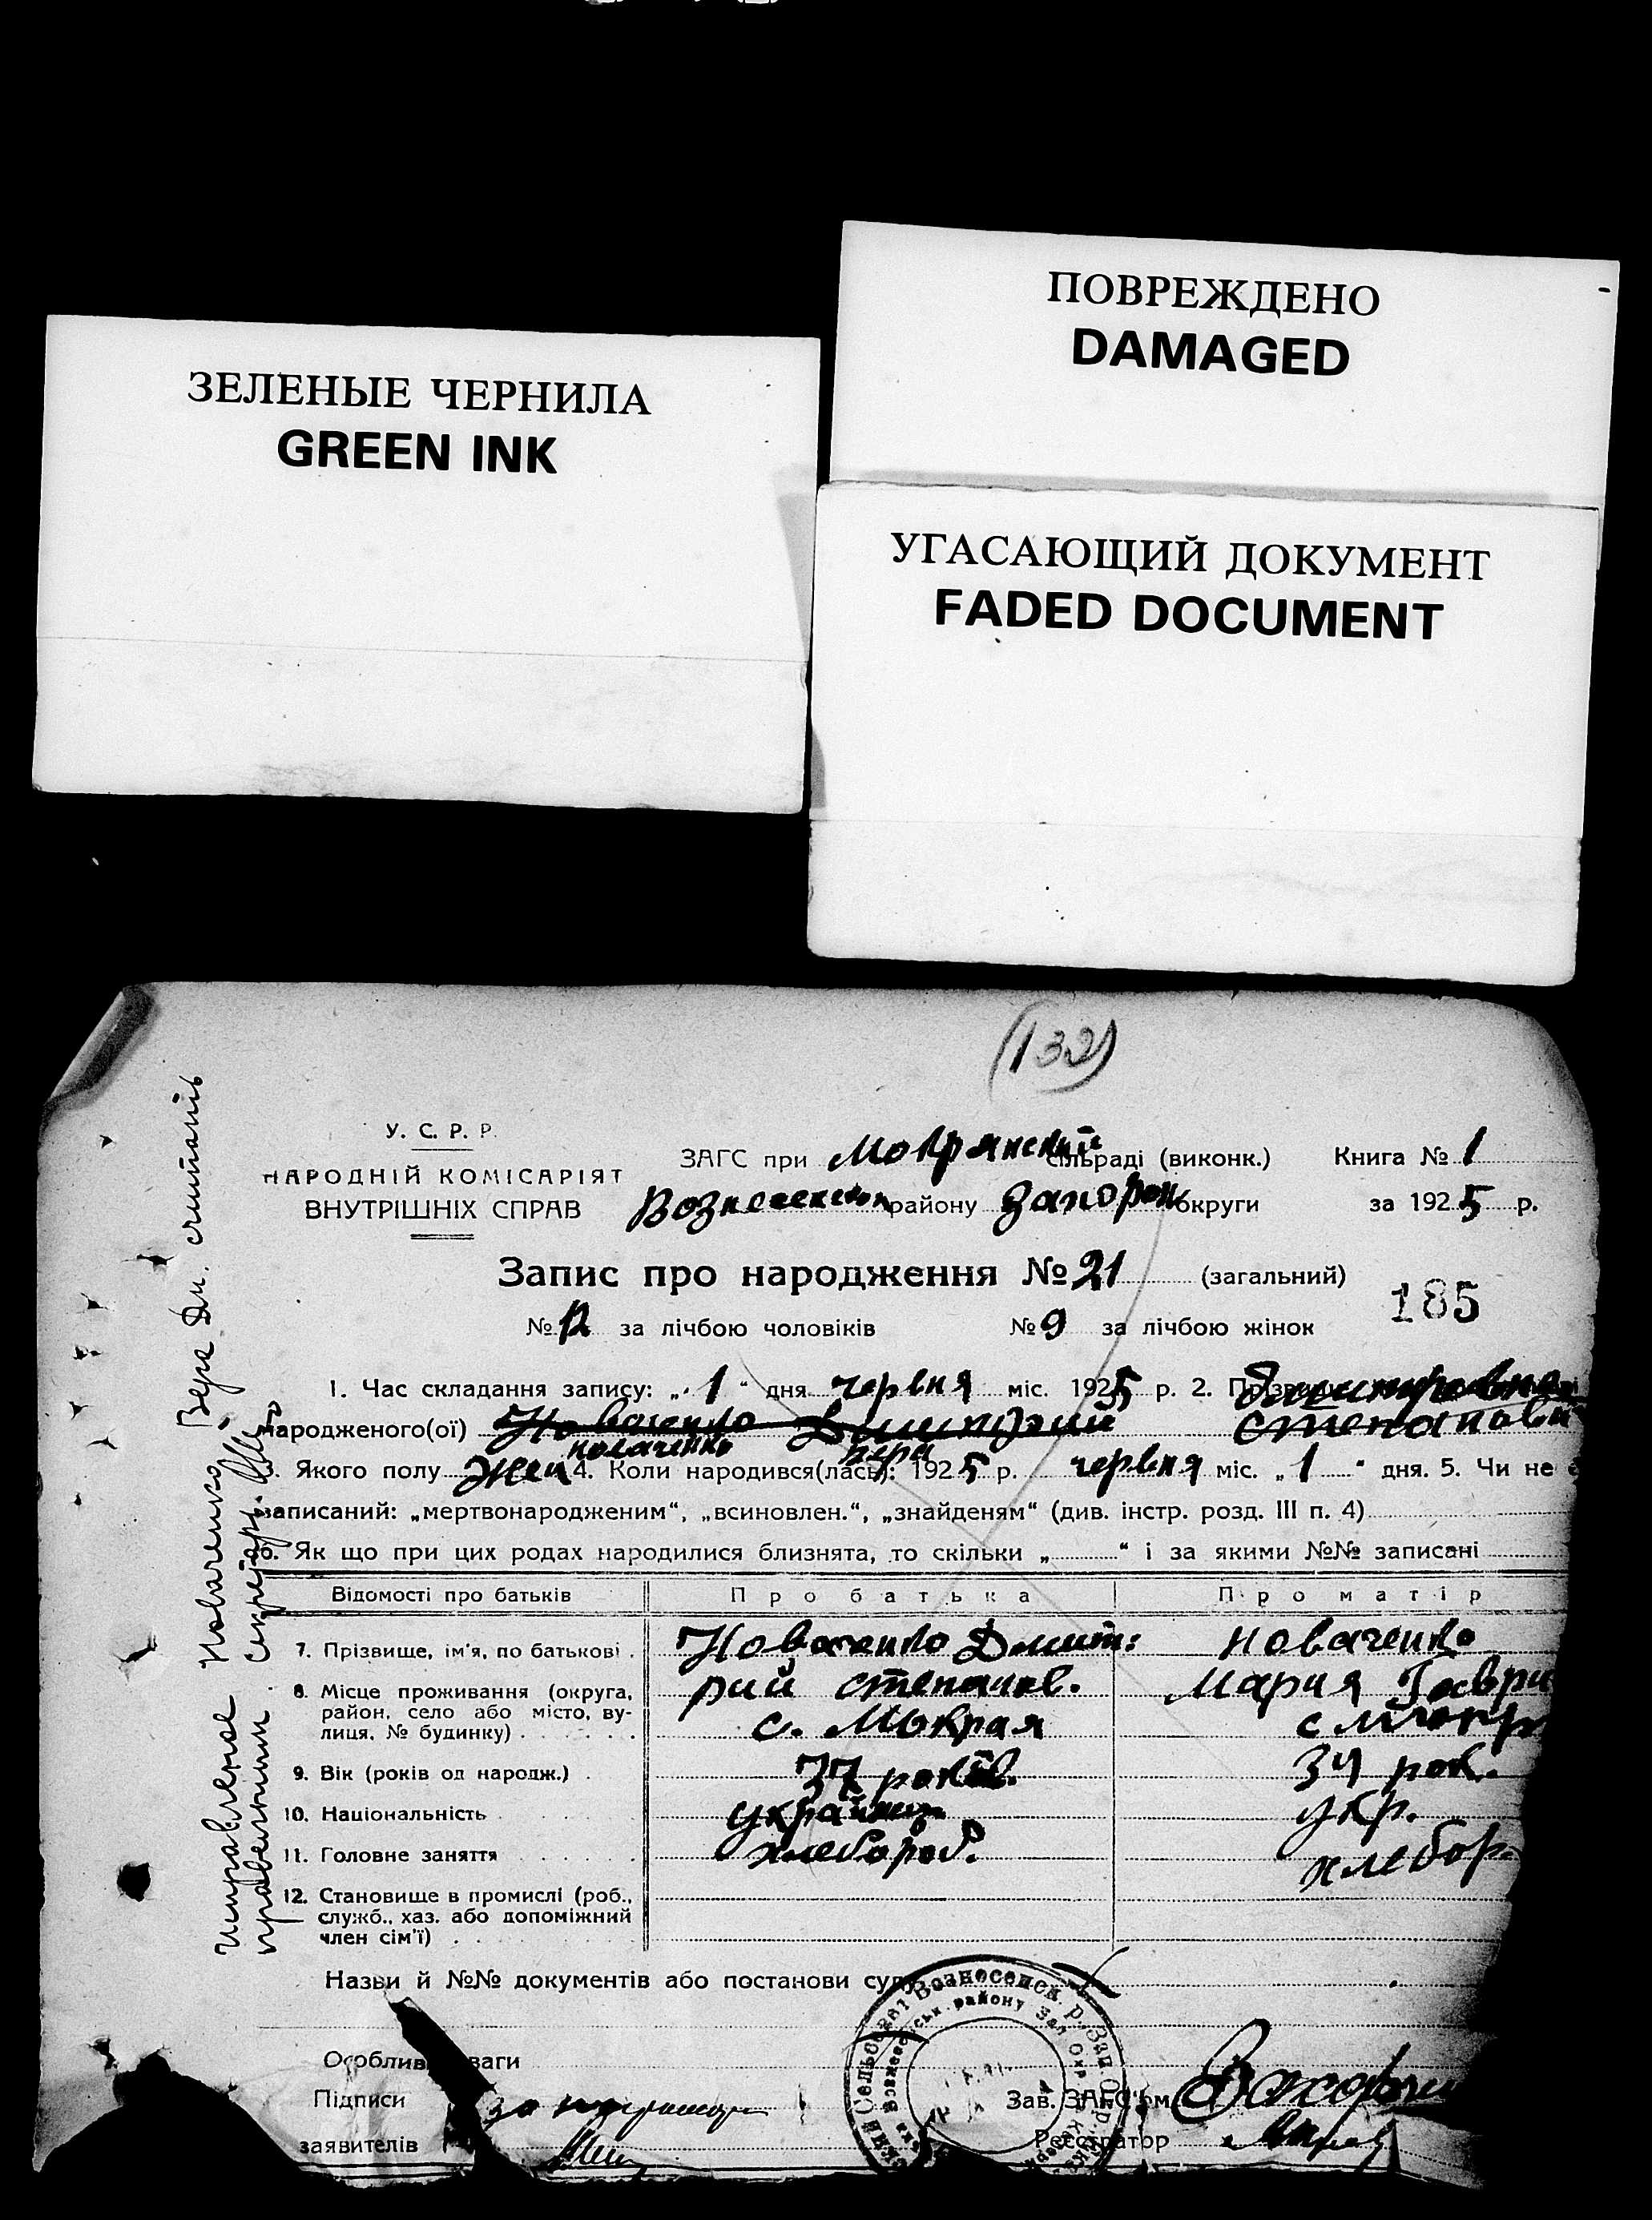 ПОВРЕЖДЕНО
DAMAGED
ЗЕЛЕНЫЕ ЧЕРНИЛА
GREEN INK
УГАСАЮЩИЙ ДОКУМЕНТ
FADED DOCUMENT
(132)
У. С. Р. Р.
НАРОДНІЙ КОМІСАРІЯТ
ВНУТРІШНІХ СПРАВ
ЗАГС при Мокрянский сільраді (виконк.) Книга № 1
Вознесенском району Запорож округи за 1925 р.
Запис про народження № 21 (загальний)
185
№ 12 за лічбою чоловіків № 9 за лічбою жінок
1. Час складання запису: „ 1 “ дня червня міс. 1925 р. 2. Дмитровна
народженого(ої) Новаченко Дмитрий степанов
новаченко Вера
3. Якого полу Жен 4. Коли народився(лась): 1925 р. червня міс. „ 1 “ дня. 5. Чи не є
записаний: „мертвонародженим“, „всиновлен.“, „знайденям“ (див. інстр. розд. III п. 4)
6. Як що при цих родах народилися близнята, то скільки „ “ і за якими №№ записані
Відомості про батьків Про батька Про матір
7. Прізвище, ім'я, по батькові Новаченко Дмит: Новаченко
8. Місце проживання (округа, рий степанов. Мария Гаври
район, село або місто, ву-
лиця, № будинку) с. Мокрая с Мокр
9. Вік (років од народж.) 37 років. 34 рок.
10. Національність україн укр.
11. Головне заняття хлебороб. хлебор.
12. Становище в промислі (роб.,
служб., хаз. або допоміжний
член сім'ї)
Назви й №№ документів або постанови суду
Особлив ваги
Підписи
заявителів
Зав. ЗАГС'ом
Реєстратор
Исправленое Новаченко Вера Дм. считать
правельним Секретарь
Сельсовет Вознесенск. р. Зап. Окр.
району Зап Окр